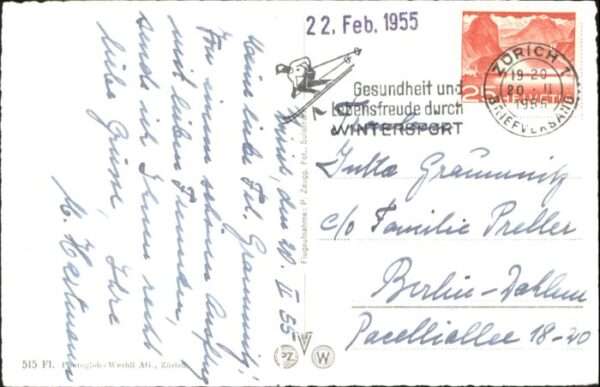 22. Feb. 1955
ZÜRICH 1
19-20
20. II
1955
BRIEFVERSAND
HELVETIA
20
Gesundheit und
Lebensfreude durch
WINTERSPORT
Jutta Graumnitz
c/o Familie Preller
Berlin-Dahlem
Pacelliallee 18-20
Zürich, den 20. II 55
Meine liebe Frl. Graumnitz,
Von einem schönen Ausflug
mit lieben Freunden,
sende ich Ihnen recht
liebe Grüsse, Ihre
M. Hartmann
Flugaufnahme: P. Zaugg, Fot.,
515 Fl. Photoglob-Wehrli AG., Zürich
PZ
W